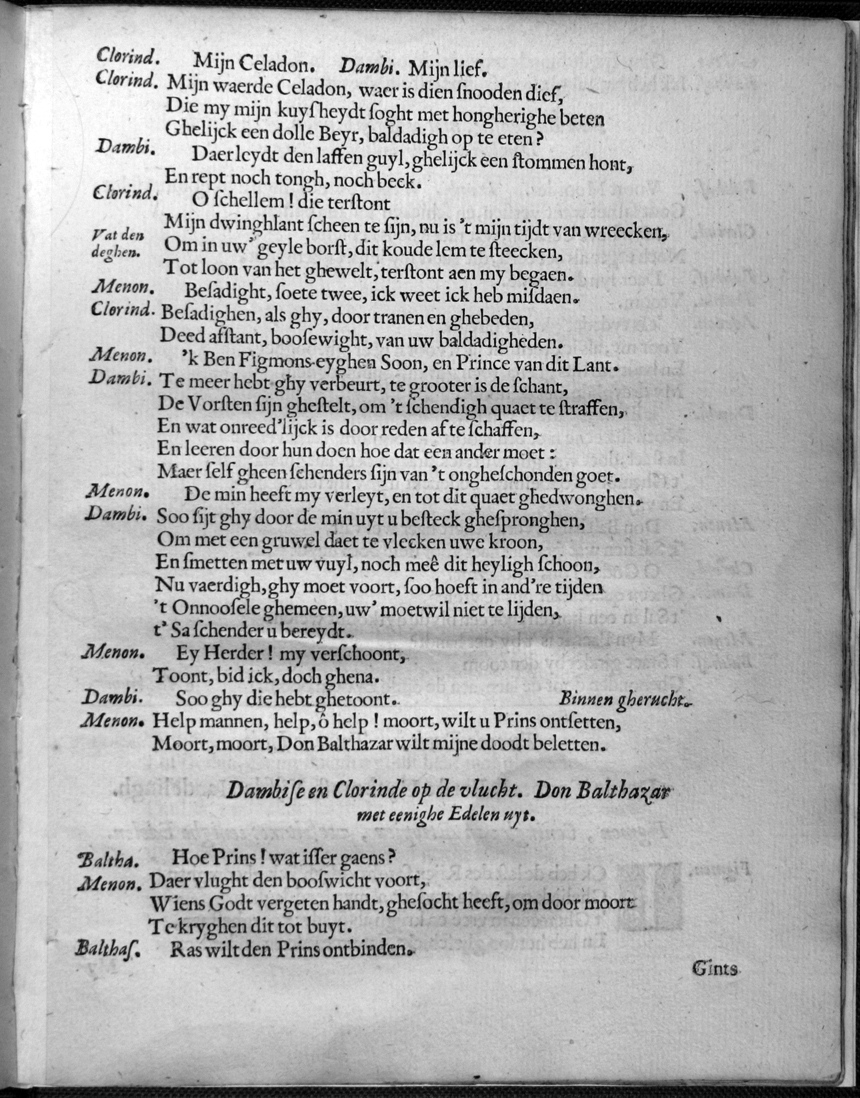 Clorind. Mijn Celadon. Dambi. Mijn lief.
Clorind. Mijn waerde Celadon, waer is dien ſnooden dief,
Die my mijn kuyſheydt ſoght met hongherighe beten
Ghelijck een dolle Beyr, baldadigh op te eten?
Dambi. Daer leydt den laffen guyl, ghelijck een ſtommen hont,
En rept noch tongh, noch beck.
Clorind. O ſchellem! die terſtont
Mijn dwinghlant ſcheen te ſijn, nu is 't mijn tijdt van wreecken,
Vat den deghen. Om in uw' geyle borſt, dit koude lem te ſteecken,
Tot loon van het ghewelt, terſtont aen my begaen.
Menon. Beſadight, ſoete twee, ick weet ick heb miſdaen.
Clorind. Beſadighen, als ghy, door tranen en ghebeden,
Deed afſtant, booſewight, van uw baldadigheden.
Menon. 'k Ben Figmons eyghen Soon, en Prince van dit Lant.
Dambi. Te meer hebt ghy verbeurt, te grooter is de ſchant,
De Vorſten ſijn gheſtelt, om 't ſchendigh quaet te ſtraffen,
En wat onreed'lijck is door reden af te ſchaffen,
En leeren door hun doen hoe dat een ander moet:
Maer ſelf gheen ſchenders ſijn van 't ongheſchonden goet.
Menon. De min heeft my verleyt, en tot dit quaet ghedwonghen.
Dambi. Soo ſijt ghy door de min uyt u beſteck gheſpronghen,
Om met een gruwel daet te vlecken uwe kroon,
En ſmetten met uw vuyl, noch meê dit heyligh ſchoon,
Nu vaerdigh, ghy moet voort, ſoo hoeft in and're tijden
't Onnooſele ghemeen, uw' moetwil niet te lijden,
t' Sa ſchender u bereydt.
Menon. Ey Herder! my verſchoont,
Toont, bid ick, doch ghena.
Dambi. Soo ghy die hebt ghetoont. Binnen gherucht.
Menon. Help mannen, help, ô help! moort, wilt u Prins ontſetten,
Moort, moort, Don Balthazar wilt mijne doodt beletten.
Dambiſe en Clorinde op de vlucht. Don Balthazar
met eenighe Edelen uyt.
Baltha. Hoe Prins! wat iſſer gaens?
Menon. Daer vlught den booſwicht voort,
Wiens Godt vergeten handt, gheſocht heeft, om door moort
Te kryghen dit tot buyt.
Balthaſ. Ras wilt den Prins ontbinden.
Gints